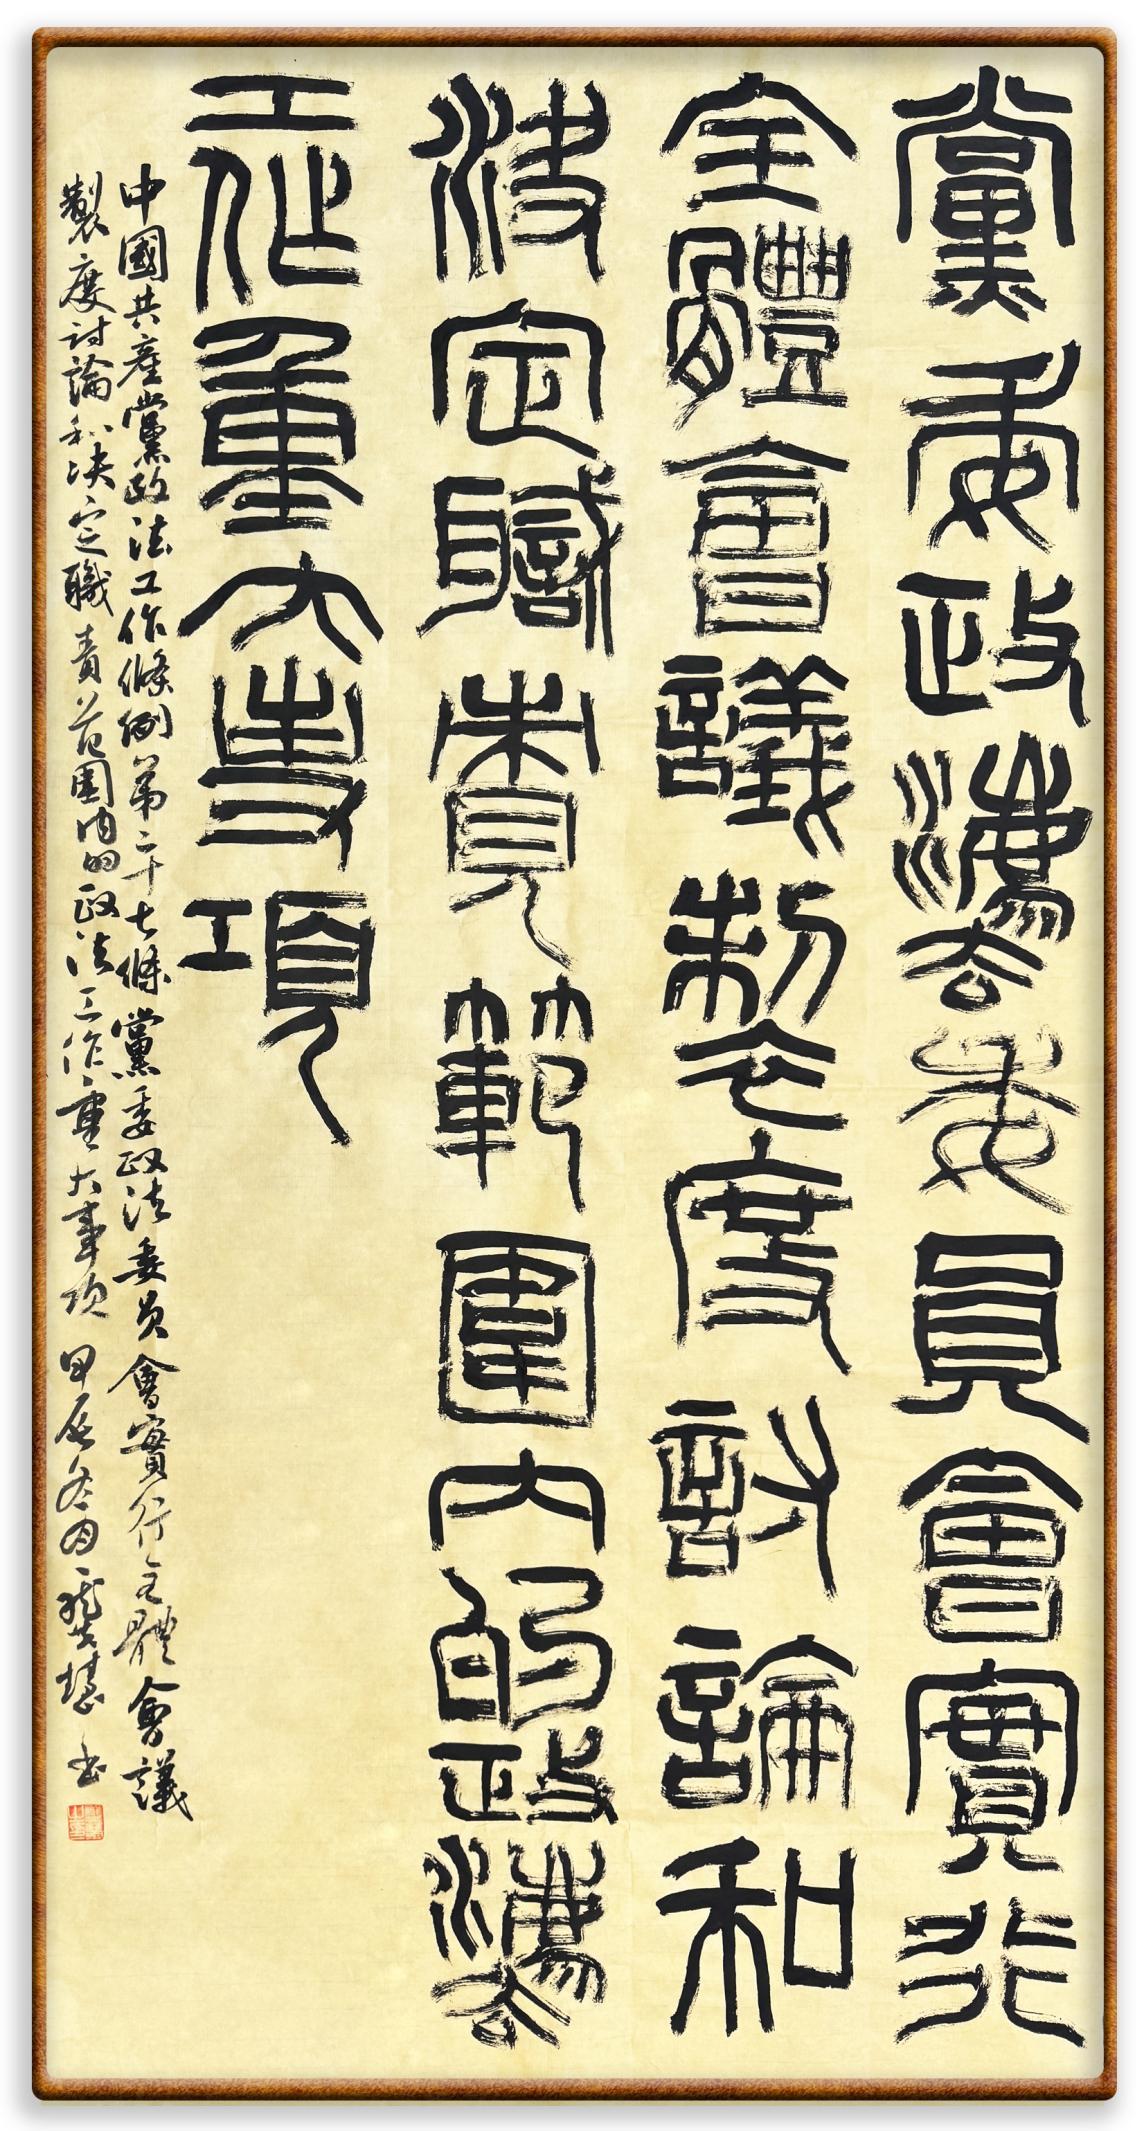 黨委政灋委員會實行
全體會議制度討論和
決定職責範圍內的政灋
工作重大事項
中國共產黨政法工作條例第二十七條黨委政法委員會實行全體會議
製度討論和決定職責范圍内的政法工作重大事項 甲辰冬月 書